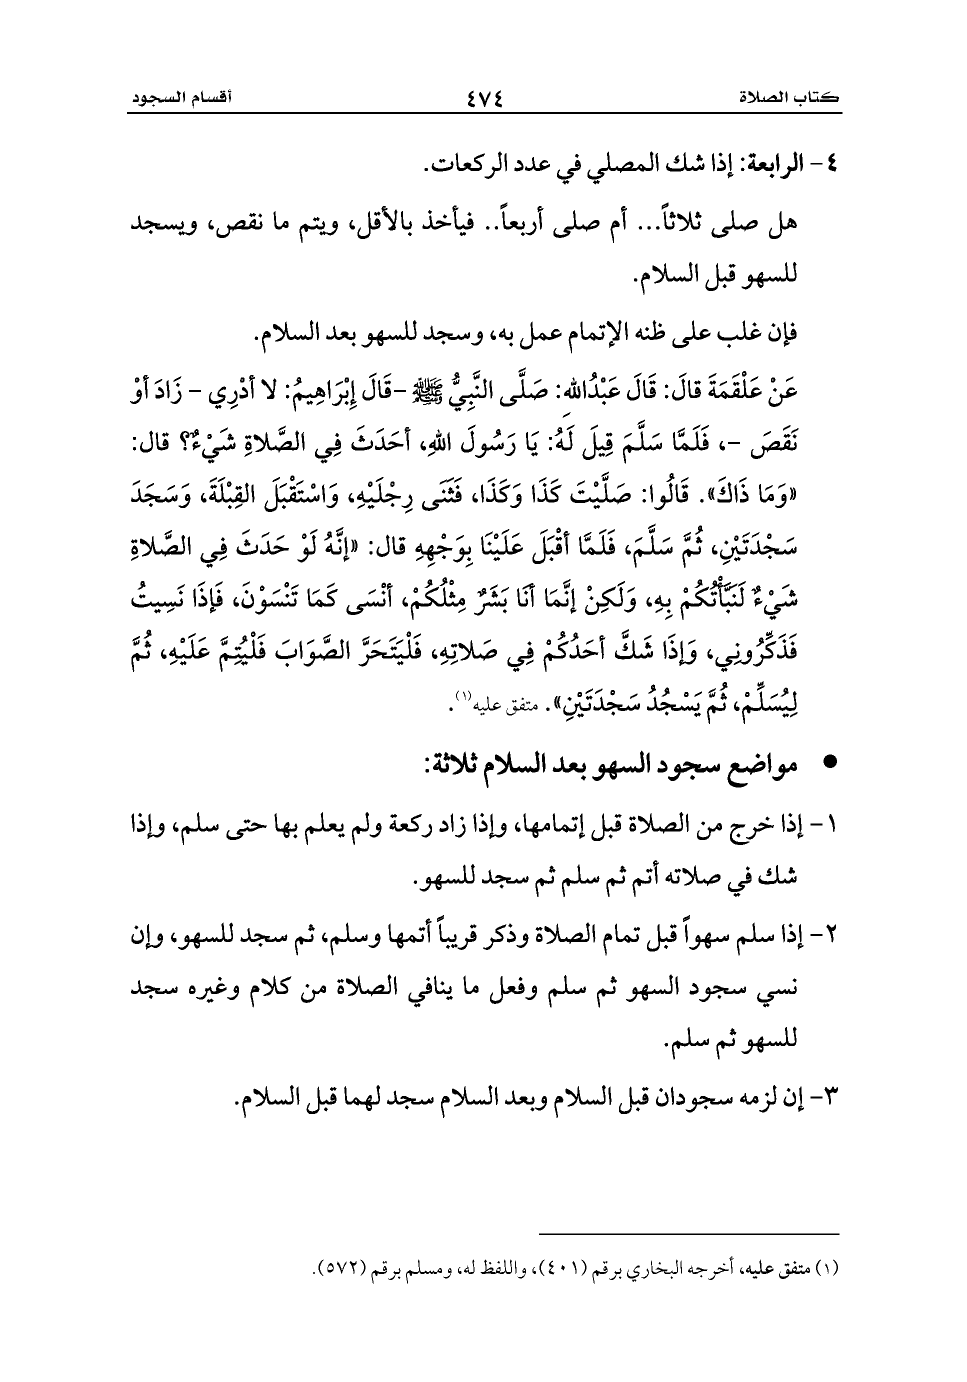 كتاب الصلاة ٤٧٤ أقسام السجود
٤- الرابعة: إذا شك المصلي في عدد الركعات.
هل صلى ثلاثاً... أم صلى أربعاً.. فيأخذ بالأقل، ويتم ما نقص، ويسجد
للسهو قبل السلام.
فإن غلب على ظنه الإتمام عمل به، وسجد للسهو بعد السلام.
عَنْ عَلْقَمَةَ قالَ: قَالَ عَبْدُالله: صَلَّى النَّبِيُّ ﷺ -قَالَ إِبْرَاهِيمُ: لا أدْرِي - زَادَ أوْ
نَقَصَ -، فَلَمَّا سَلَّمَ قِيلَ لَهُ: يَا رَسُولَ اللهِ، أحَدَثَ فِي الصَّلاةِ شَيْءٌ؟ قال:
«وَمَا ذَاكَ». قَالُوا: صَلَّيْتَ كَذَا وَكَذَا، فَثَنَى رِجْلَيْهِ، وَاسْتَقْبَلَ القِبْلَةَ، وَسَجَدَ
سَجْدَتَيْنِ، ثُمَّ سَلَّمَ، فَلَمَّا أقْبَلَ عَلَيْنَا بِوَجْهِهِ قال: «إنَّهُ لَوْ حَدَثَ فِي الصَّلاةِ
شَيْءٌ لَنَبَّأْتُكُمْ بِهِ، وَلَكِنْ إنَّمَا أنَا بَشَرٌ مِثْلُكُمْ، أنْسَى كَمَا تَنْسَوْنَ، فَإذَا نَسِيتُ
فَذَكِّرُونِي، وَإذَا شَكَّ أحَدُكُمْ فِي صَلاتِهِ، فَلْيَتَحَرَّ الصَّوَابَ فَلْيُتِمَّ عَلَيْهِ، ثُمَّ
لِيُسَلِّمْ، ثُمَّ يَسْجُدُ سَجْدَتَيْنِ». متفق عليه(١).
● مواضع سجود السهو بعد السلام ثلاثة:
١- إذا خرج من الصلاة قبل إتمامها، وإذا زاد ركعة ولم يعلم بها حتى سلم، وإذا
شك في صلاته أتم ثم سلم ثم سجد للسهو.
٢- إذا سلم سهواً قبل تمام الصلاة وذكر قريباً أتمها وسلم، ثم سجد للسهو، وإن
نسي سجود السهو ثم سلم وفعل ما ينافي الصلاة من كلام وغيره سجد
للسهو ثم سلم.
٣- إن لزمه سجودان قبل السلام وبعد السلام سجد لهما قبل السلام.
(١) متفق عليه، أخرجه البخاري برقم (٤٠١)، واللفظ له، ومسلم برقم (٥٧٢).